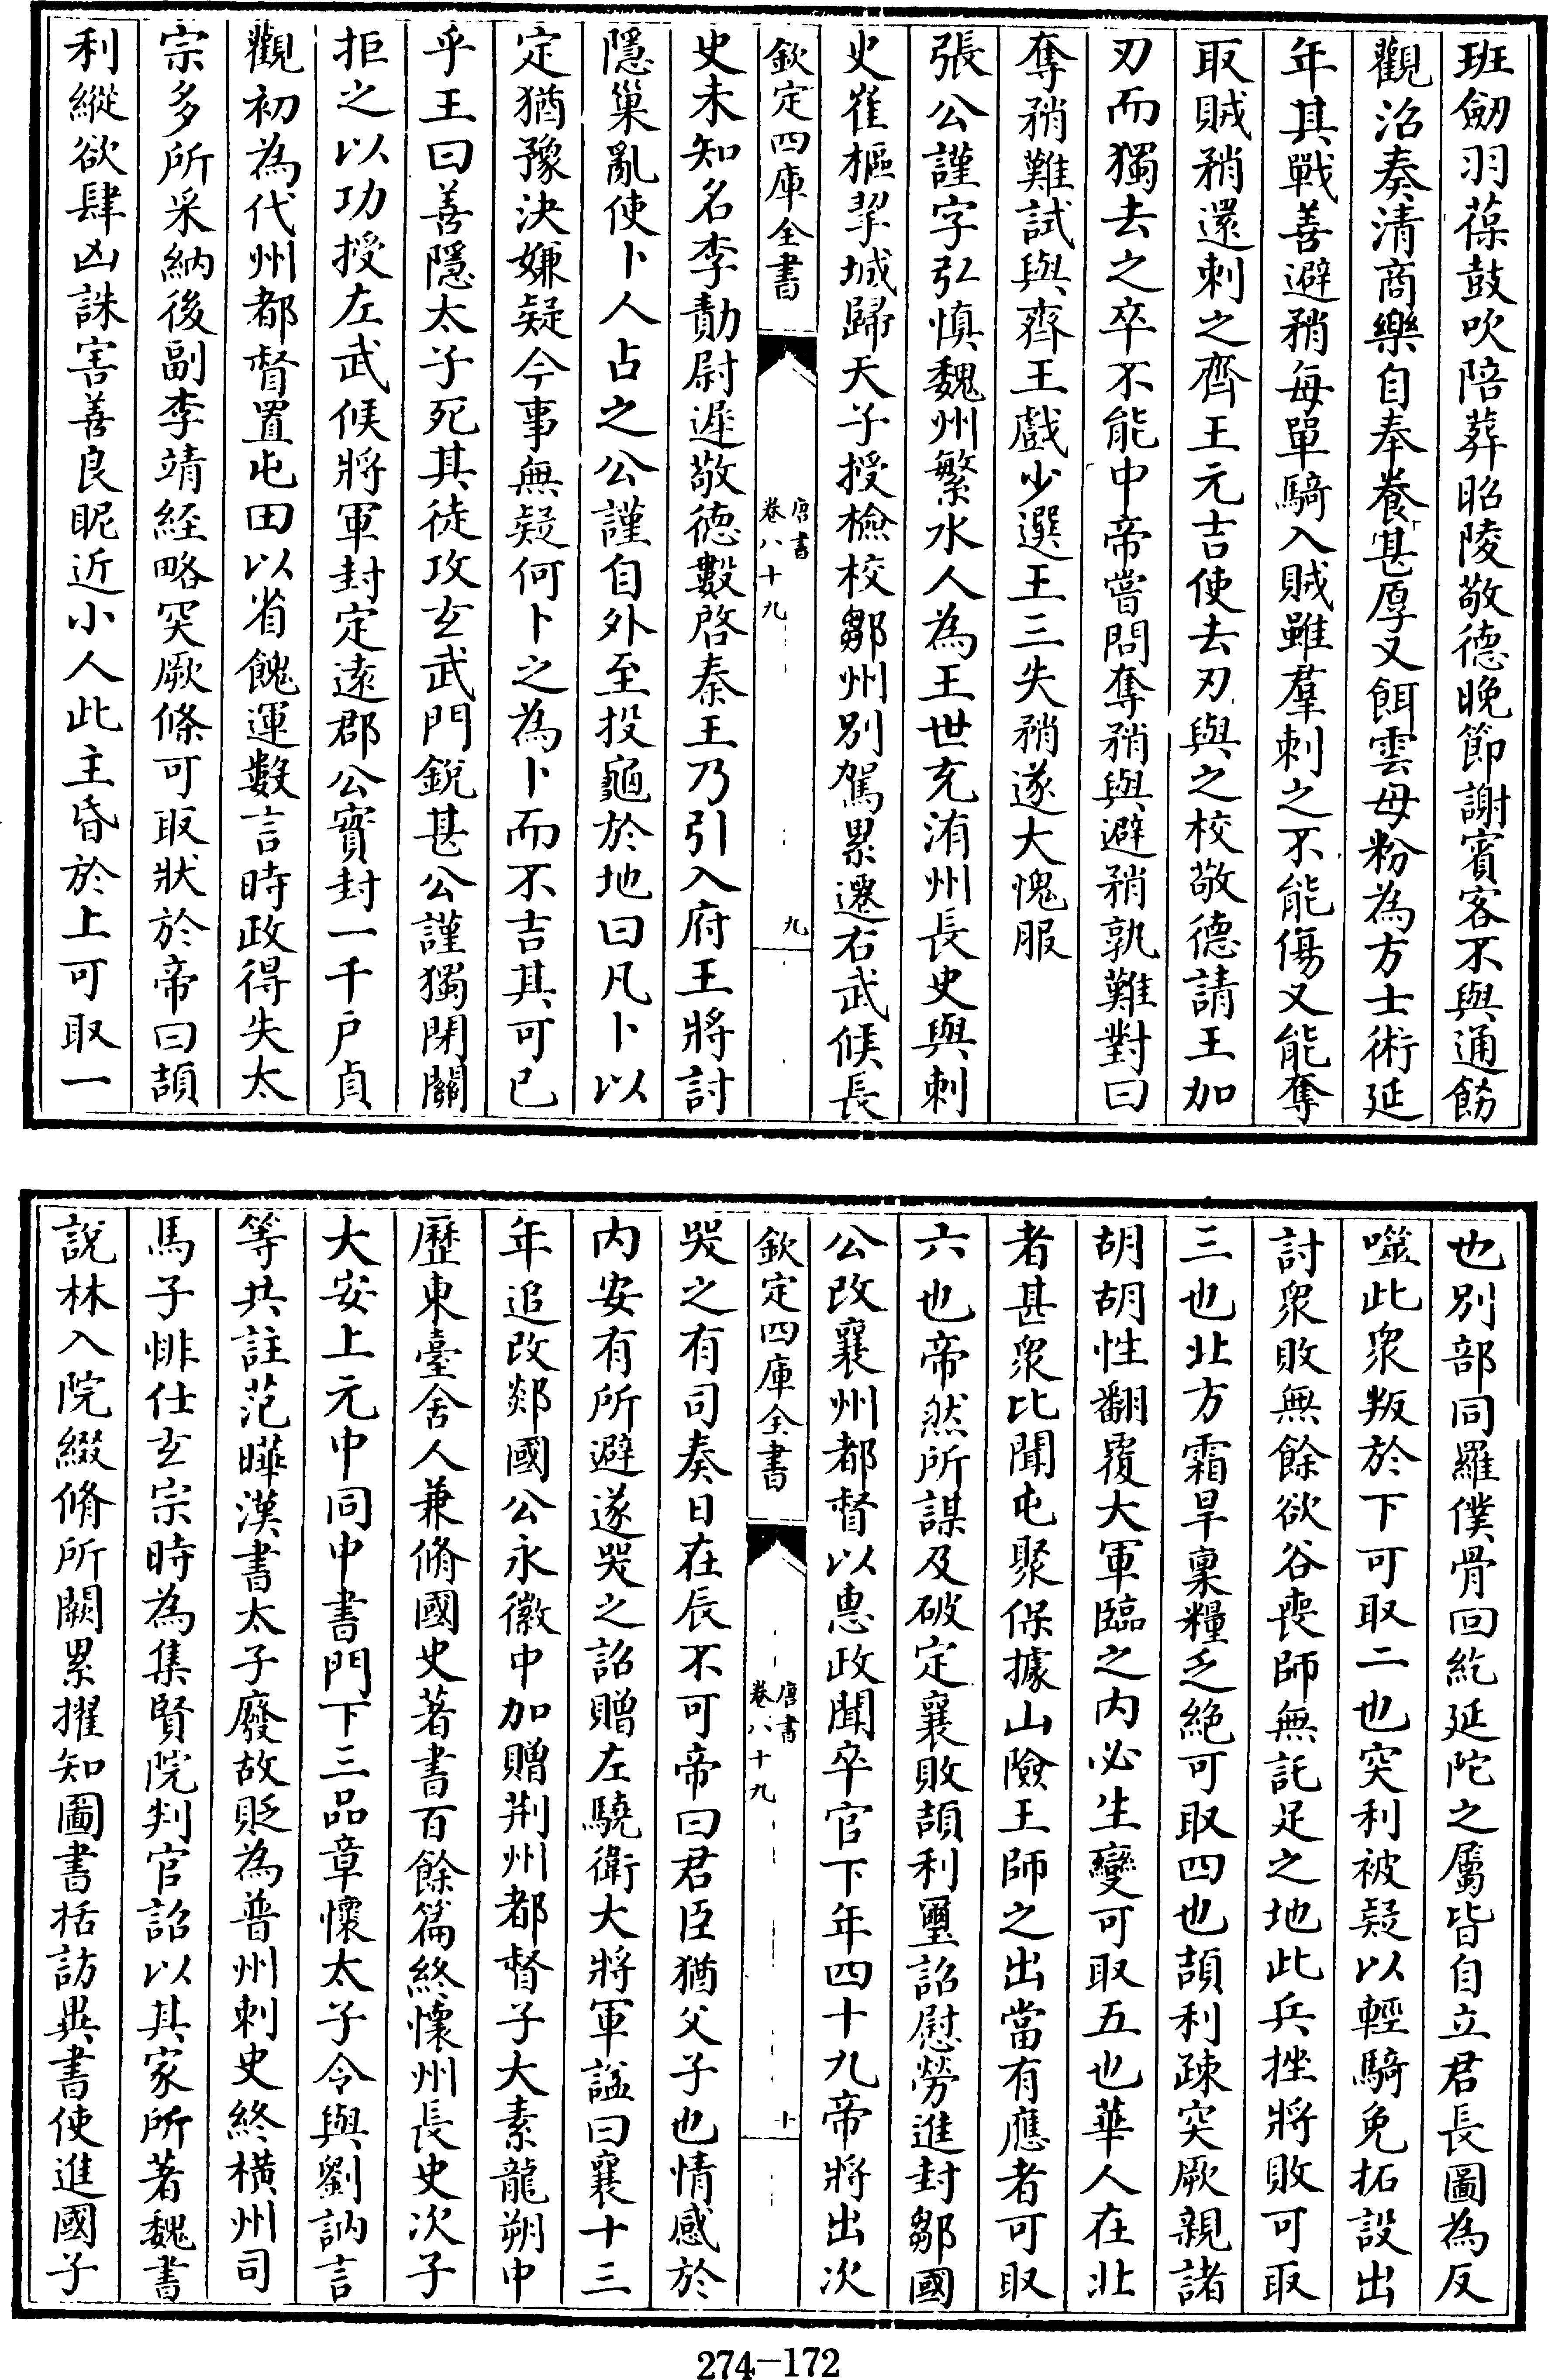 班劒羽葆鼓吹陪葬昭陵敬德晚節謝賓客不與通飭
觀沼奏清商樂自奉養甚厚又餌雲母粉為方士術延
年其戰善避矟每單騎入賊雖羣刺之不能傷又能奪
取賊矟還刺之齊王元吉使去刃與之校敬德請王加
刃而獨去之卒不能中帝嘗問奪矟與避矟孰難對曰
奪矟難試與齊王戲少選王三失矟遂大愧服
張公謹字弘慎魏州繁水人為王世充洧州長史與刺
史崔樞挈城歸天子授檢校鄒州別駕累遷右武候長
欽定四庫全書
唐書
卷八十九
九
史未知名李勣尉遲敬德數啓秦王乃引入府王將討
隱巢亂使卜人占之公謹自外至投龜於地曰凡卜以
定猶豫決嫌疑今事無疑何卜之為卜而不吉其可已
乎王曰善隱太子死其徒攻玄武門銳甚公謹獨閉關
拒之以功授左武候將軍封定遠郡公實封一千戶貞
觀初為代州都督置屯田以省餽運數言時政得失太
宗多所采納後副李靖經略突厥條可取狀於帝曰頡
利縱欲肆凶誅害善良昵近小人此主昏於上可取一
也別部同羅僕骨回紇延陀之屬皆自立君長圖為反
噬此衆叛於下可取二也突利被疑以輕騎免拓設出
討衆敗無餘欲谷喪師無託足之地此兵挫將敗可取
三也北方霜旱稟糧乏絕可取四也頡利疎突厥親諸
胡胡性翻覆大軍臨之內必生變可取五也華人在北
者甚衆比聞屯聚保據山險王師之出當有應者可取
六也帝然所謀及破定襄敗頡利璽詔慰勞進封鄒國
公改襄州都督以惠政聞卒官下年四十九帝將出次
欽定四庫全書
唐書
卷八十九
十
哭之有司奏日在辰不可帝曰君臣猶父子也情感於
內安有所避遂哭之詔贈左驍衛大將軍諡曰襄十三
年追改郯國公永徽中加贈荆州都督子大素龍朔中
歷東臺舍人兼脩國史著書百餘篇終懷州長史次子
大安上元中同中書門下三品章懷太子令與劉訥言
等共註范曄漢書太子廢故貶為普州刺史終橫州司
馬子悱仕玄宗時為集賢院判官詔以其家所著魏書
說林入院綴脩所闕累擢知圖書括訪異書使進國子
274-172